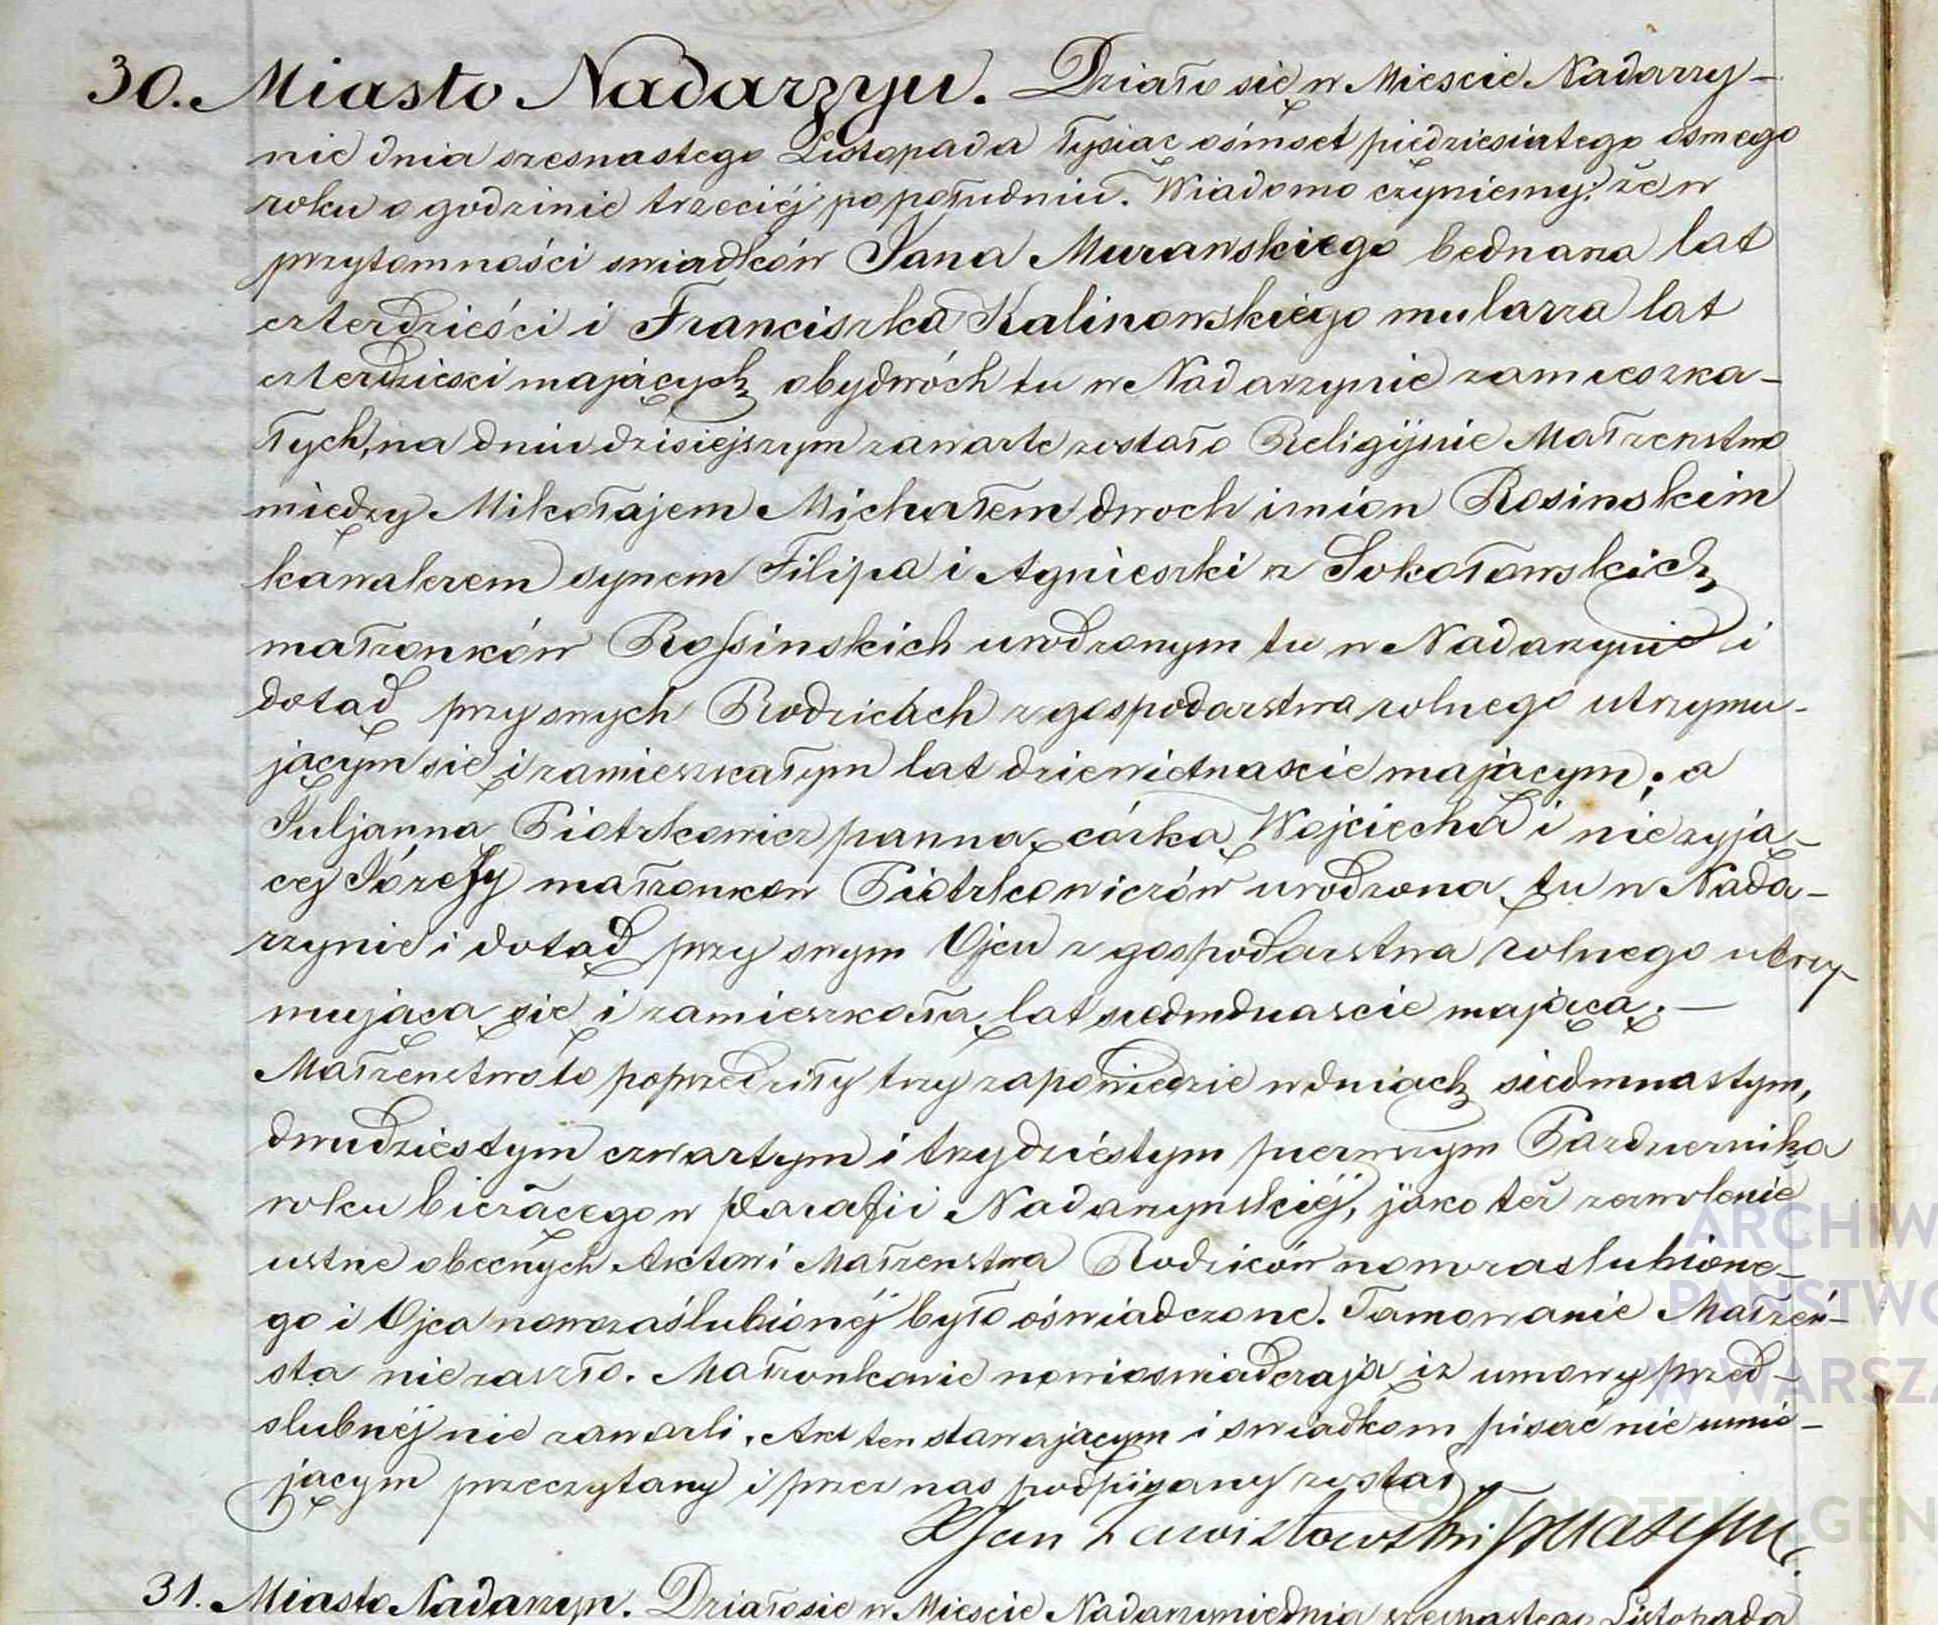 30. Miasto Nadarzyn. Działo się w Mieście Nadarzy-
nie dnia szesnastego Listopada tysiąc ośmset piędziesiątego ósmego
roku o godzinie trzeciéj popołudniu. Wiadomo czyniemy: że w
przytomności swiadków Jana Murawskiego bednarza lat
czterdzieści i Franciszka Kalinowskiego mularza lat
czterdziesci mających obydwóch tu w Nadarzynie zamieszka-
łych, na dniu dzisiejszym zawarte zostało Religijnie Małżenstwo
między Mikołajem Michałem dwoch imion Rosinskim
kawalerem synem Filipa i Agnieszki z Sokołowskich
małżonków Rossinskich urodzonym tu w Nadarzynie i
dotąd przy swych Rodzicach z gospodarstwa rolnego utrzymu-
jącym się i zamieszkałym lat dziewietnascie mającym; a
Juljanną Piotrkowicz panną córką Wojciecha i nieżyją-
cej Józefy małżonkow Piotrkowiczów urodzoną tu w Nada-
rzynie i dotąd przy swym Ojcu z gospodarstwa rolnego utrzy
mującą się i zamieszkałą lat siedmdnascie mającą. —
Małżenstwo to poprzedziły trzy zapowiedzie w dniach siedmnastym,
dwudziestym czwartym i trzydziestym pierwszym Pazdziernika
roku bieżącego w Parafii Nadarzynskiéj, jako też zezwolenie
ustne obecnych Aktowi Małżenstwa Rodziców nowozaslubione-
go i Ojca nowozaślubionéj było oświadczone. Tamowanie Małżeń-
sta nie zaszło. Małżonkowie nowi oswiadczają iż umowy przed-
slubnéj nie zawarli. Akt ten stawającym i swiadkom pisać nie umie-
jącym przeczytany i przez nas podpisany został.
X Jan Zawistowski
31. Miasto Nadarzyn. Działo się w Miescie Nadarzynie dnia szesnastego Listopada
ARCHIW
PAŃSTWO
W WARSZA
SKANOTEKA GEN